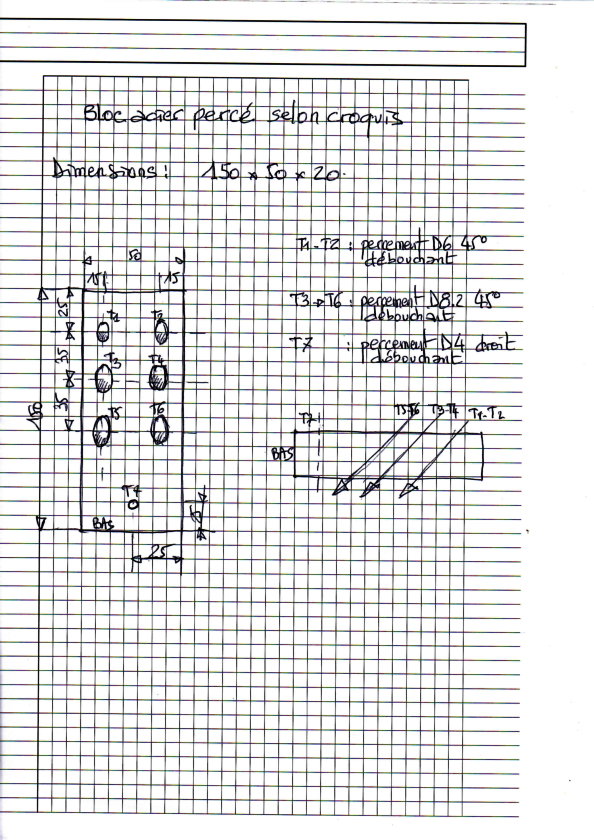 Bloc acier percé selon croquis
Dimensions : 150 x 50 x 20.
T1-T2 : percement D6 45°
débouchant
T3→T6 : percement D8.2 45°
débouchant
T7 : percement D4 droit
débouchant
50
15 15
25
T1 T2
35
T3 T4
35
T5 T6
150
T7
15
BAS
25
T7 T5-T6 T3-T4 T1-T2
BAS